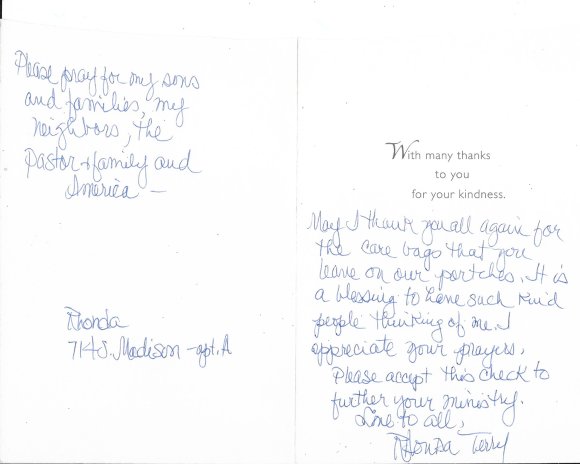 Please pray for my sons
and families, my
neighbors, the
Pastor & family and
America —
Rhonda
714 S. Madison - apt. A
With many thanks
to you
for your kindness.
May I thank you all again for
the care bags that you
leave on our portches. It is
a blessing to have such kind
people thinking of me. I
appreciate your prayers.
Please accept this check to
further your ministry.
Love to all,
Rhonda Terry